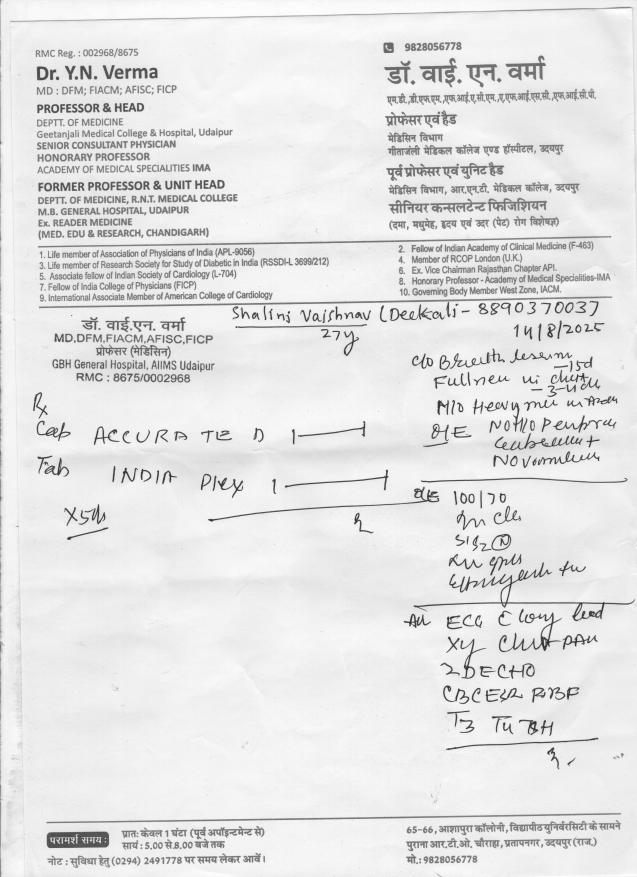 RMC Reg. : 002968/8675
Dr. Y.N. Verma
MD : DFM; FIACM; AFISC; FICP
PROFESSOR & HEAD
DEPTT. OF MEDICINE
Geetanjali Medical College & Hospital, Udaipur
SENIOR CONSULTANT PHYSICIAN
HONORARY PROFESSOR
ACADEMY OF MEDICAL SPECIALITIES IMA
FORMER PROFESSOR & UNIT HEAD
DEPTT. OF MEDICINE, R.N.T. MEDICAL COLLEGE
M.B. GENERAL HOSPITAL, UDAIPUR
Ex. READER MEDICINE
(MED. EDU & RESEARCH, CHANDIGARH)
9828056778
डॉ. वाई. एन. वर्मा
एम.डी.,डी.एफ.एम.,एफ.आई.ए.सी.एम.,ए.एफ.आई.एस.सी.,एफ.आई.सी.पी.
प्रोफेसर एवं हैड
मेडिसिन विभाग
गीतांजली मेडिकल कॉलेज एण्ड हॉस्पीटल, उदयपुर
पूर्व प्रोफेसर एवं युनिट हैड
मेडिसिन विभाग, आर.एन.टी. मेडिकल कॉलेज, उदयपुर
सीनियर कन्सलटेन्ट फिजिशियन
(दमा, मधुमेह, हृदय एवं उदर (पेट) रोग विशेषज्ञ)
1. Life member of Association of Physicians of India (APL-9056)
3. Life member of Research Society for Study of Diabetic in India (RSSDI-L 3699/212)
5. Associate fellow of Indian Society of Cardiology (L-704)
7. Fellow of India College of Physicians (FICP)
9. International Associate Member of American College of Cardiology
2. Fellow of Indian Academy of Clinical Medicine (F-463)
4. Member of RCOP London (U.K.)
6. Ex. Vice Chairman Rajasthan Chapter API.
8. Honorary Professor - Academy of Medical Specialities-IMA
10. Governing Body Member West Zone, IACM.
Shalini Vaishnav (Deekali - 8890370037
27y
14/8/2025
डॉ. वाई.एन. वर्मा
MD,DFM,FIACM,AFISC,FICP
प्रोफेसर (मेडिसिन)
GBH General Hospital, AIIMS Udaipur
RMC : 8675/0002968
c/o
15d
Fullness in chest
Heavy
Rx
Cap ACCURATE D 1
O/E
Tab INDIA Plex 1
X5d
O/E 100/70
S1S2 N
ECG long lead
2D ECHO
CBC ESR
T3 T4 TSH
परामर्श समय :
प्रात: केवल 1 घंटा (पूर्व अपॉइन्टमेन्ट से)
सायं : 5.00 से 8.00 बजे तक
नोट : सुविधा हेतु (0294) 2491778 पर समय लेकर आवें।
65-66, आशापुरा कॉलोनी, विद्यापीठ युनिवरसिटी के सामने
पुराना आर.टी.ओ. चौराहा, प्रतापनगर, उदयपुर (राज.)
मो.: 9828056778